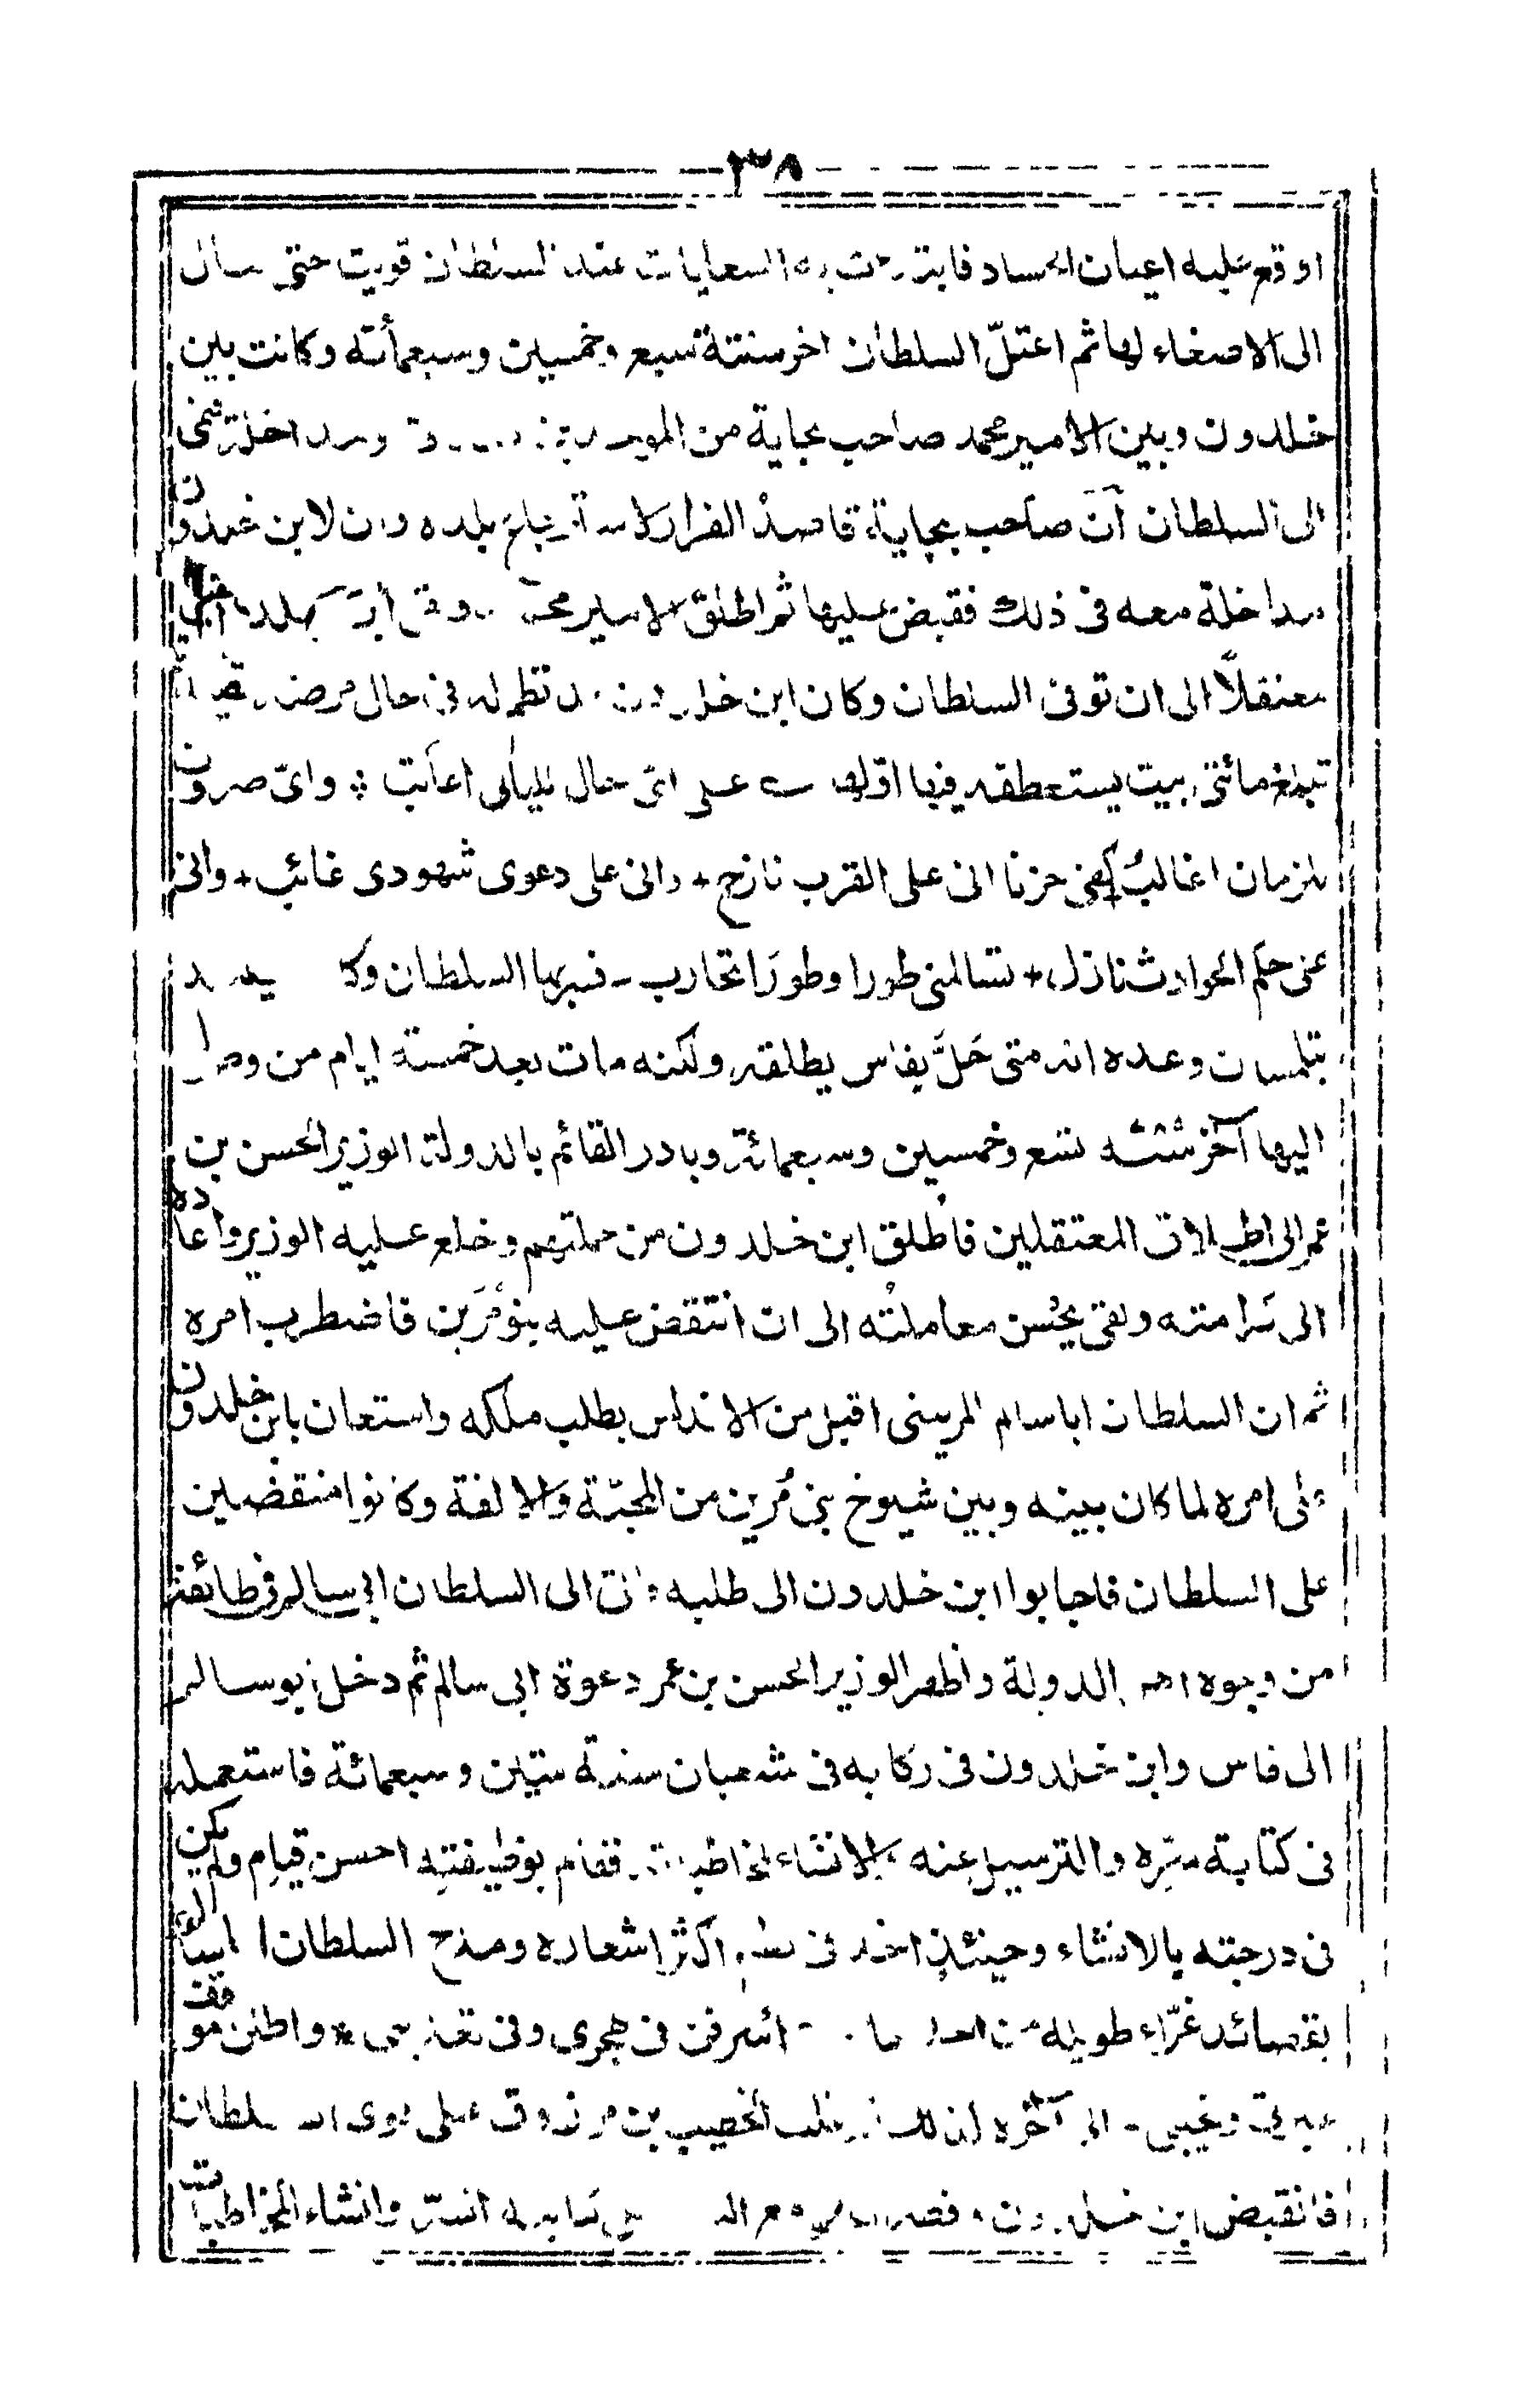 ٣٣٨
اوقع عليه اعيان الحساد فابتدئت به السعايات عند السلطان قويت حتى مال
الى الاصغاء لها ثم اعتلّ السلطان اخر سنة سبع وخمسين وسبعمأته وكانت بين
خلدون وبين الامير محمد صاحب بجاية من الموحدين
الى السلطان أنّ صاحب بجاية قاصد الفرار بلده وان لابن خلدون
مداخلة معه فى ذلك فقبض عليها ثم اطلق الامير محمد
معتقلاً الى ان توفى السلطان وكان ابن خلدون نظم له فى حال مرض
تبلغ مائتى بيت يستعطفه فيها اوّلها على اىّ حال لليالى اعاتب واىّ صروف
للزمان اغالبُ كفى حزنا انى على القرب نازح + وانى على دعوى شهودى غائب + وانى
على حكم الحوادث نازل + تسالمنى طورا وطورًا تحارب - فسر بها السلطان وكان
بتلمسان وعده انه متى حَلَّ بفاس يطلقه ولكنه مات بعد خمسته ايام من وصوله
اليها آخر سنته تسع وخمسين وسبعمائة وبادر القائم بالدولة الوزير الحسن بن
عمر الى اطلاق المعتقلين فاطلق ابن خلدون من جملتهم وخلع عليه الوزير واعاده
الى كرامته ولقى بحُسن معاملتُه الى ان انتقض عليه بنو مَرين فاضطرب امره
ثم ان السلطان اباسالم المرينى اقبل من الاندلس يطلب ملكه واستعان بابن خلدون
على امره لما كان بينه وبين شيوخ بنى مُرين من المحبّة والالفة وكانوا منقضين
على السلطان فاجابوا ابن خلدون الى طلبه واتى الى السلطان ابى سالم فى طائفة
من وجوه اهل الدولة واظهر الوزير الحسن بن عمر دعوة ابى سالم ثم دخل ابو سالم
الى فاس وابن خلدون فى ركابه فى شعبان سنة ستين وسبعمائة فاستعمله
فى كتابة سرّه والترسيل عنه والانشاء لمخاطباته فقام بوظيفته احسن قيام ولم يكن
فى درجته بالانشاء وحينئذٍ اخذ فى نظم اكثر اشعاره ومدح السلطان اباسالم
بقصائد غرّاء طويلة من اسرفن فى هجرى وفى تعذيبى * واطلن موقف
عبرتى ونحيبى - الى آخره غلب الخصيب بن مرزوق على هوى السلطان
فانقبض ابن خلدون وقصر وانشاء المخاطبات